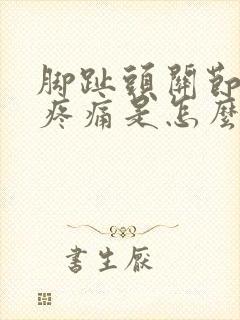 脚趾頭關節
疼痛是怎麼
書生厭